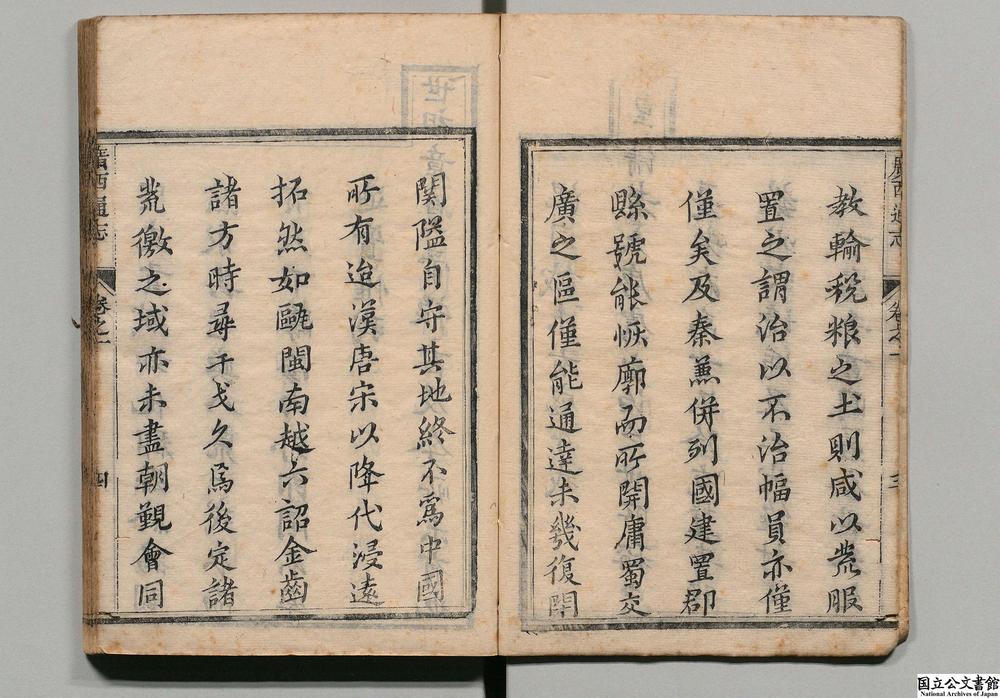 廣西通志
卷之一
三
教輸税粮之土則咸以荒服
置之謂治以不治幅員亦僅
僅矣及秦蕪併列國建置郡
縣號能恢廓而所開庸蜀交
廣之區僅能通達未幾復閉
関隘自守其地終不爲中國
所有迨漢唐宋以降代浸遠
拓然如甌閩南越六詔金齒
諸方時尋干戈久焉後定諸
荒徼之域亦未盡朝覲會同
廣西通志
卷之一
四
国立公文書館
National Archives of Japan